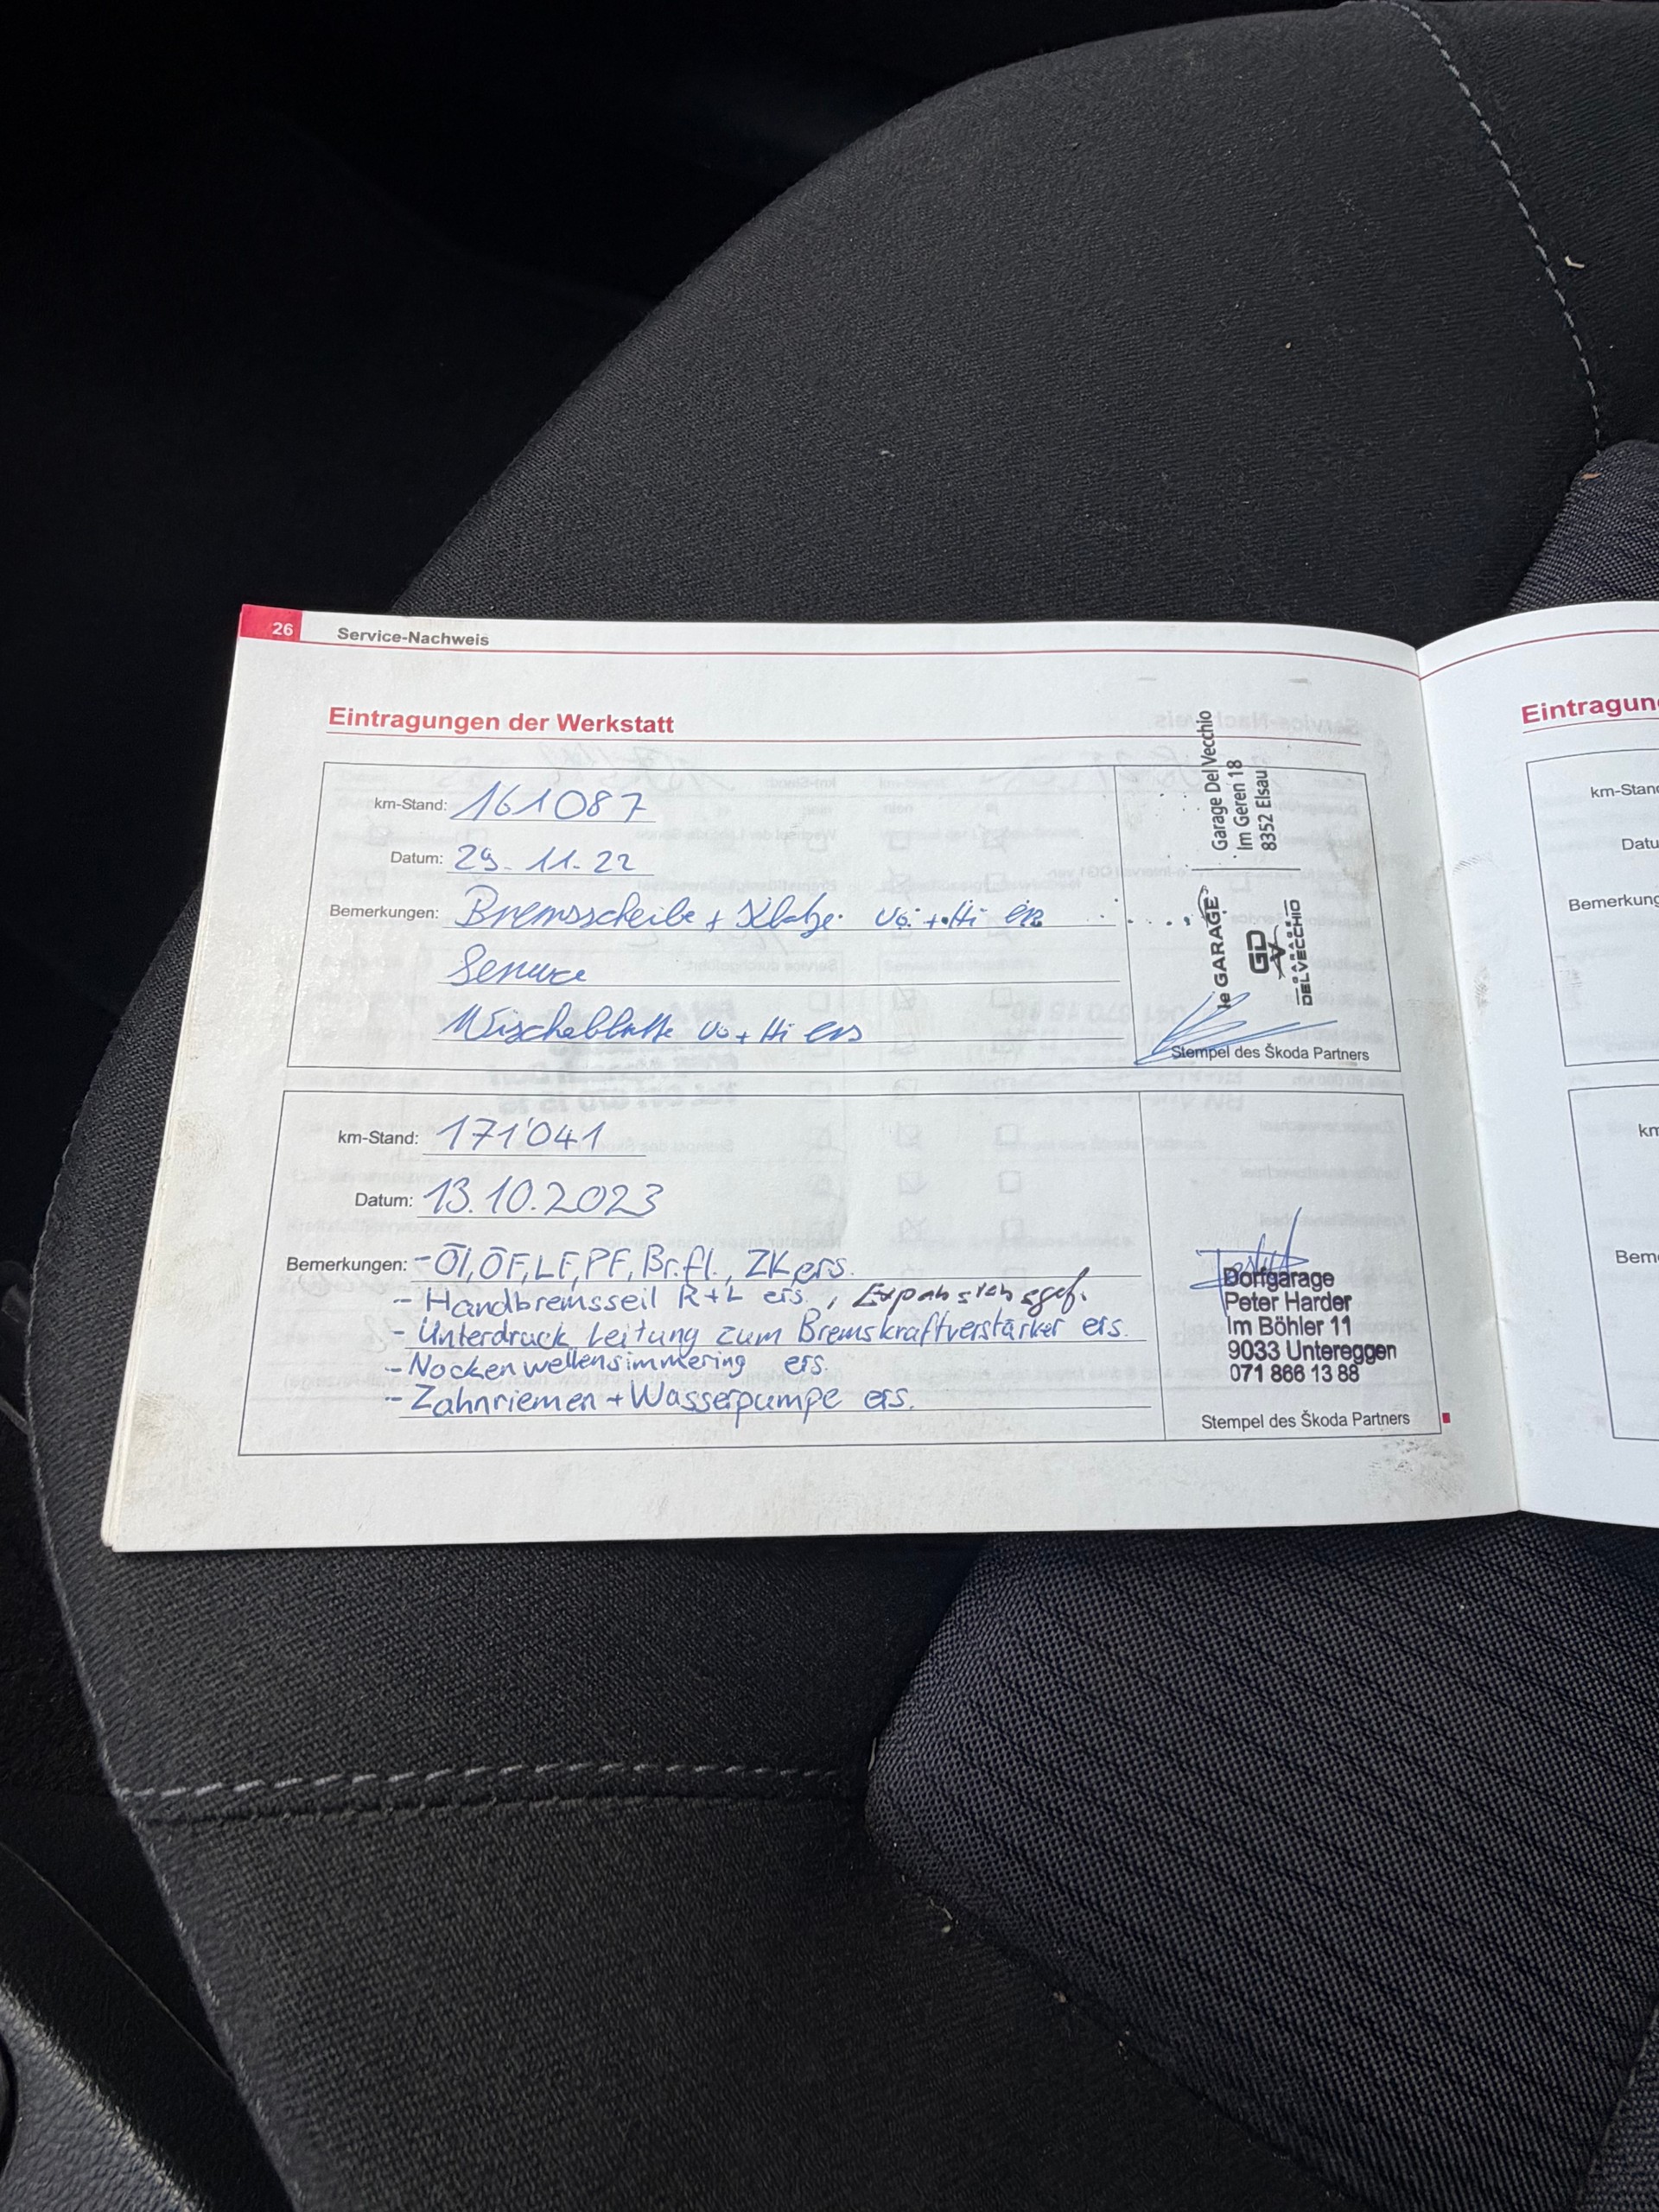 26 Service-Nachweis
Eintragungen der Werkstatt
km-Stand: 161087
Datum: 29.11.22
Bemerkungen: Bremsscheibe + Klötze. Vo. + Hi ers
Service
Wischerblätter Vo + Hi ers
le GARAGE
GD
GARAGE
DELVECCHIO
Garage Del Vecchio
Im Geren 18
8352 Elsau
Stempel des Škoda Partners
km-Stand: 171'041
Datum: 13.10.2023
Bemerkungen: - Öl, ÖF, LF, PF, Br.fl., ZK ers.
- Handbremsseil R+L ers., Expansionsgef.
- Unterdruck Leitung zum Bremskraftverstärker ers.
- Nockenwellensimmering ers.
- Zahnriemen + Wasserpumpe ers.
Dorfgarage
Peter Harder
Im Böhler 11
9033 Untereggen
071 866 13 88
Stempel des Škoda Partners
Eintragun
km-Stan
Datu
Bemerkung
km
Bem